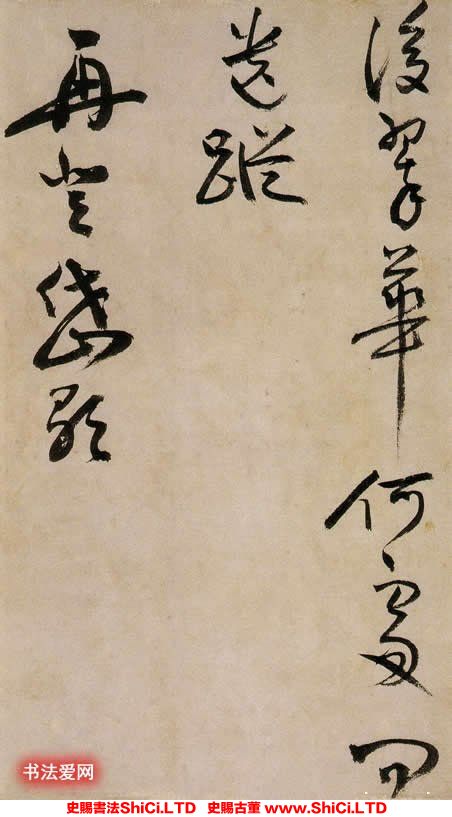 後翠華何處問
遺蹤
再登岱
书法爱网
史賜書法ShiCi.LTD 史賜古董 www.ShiCi.LTD